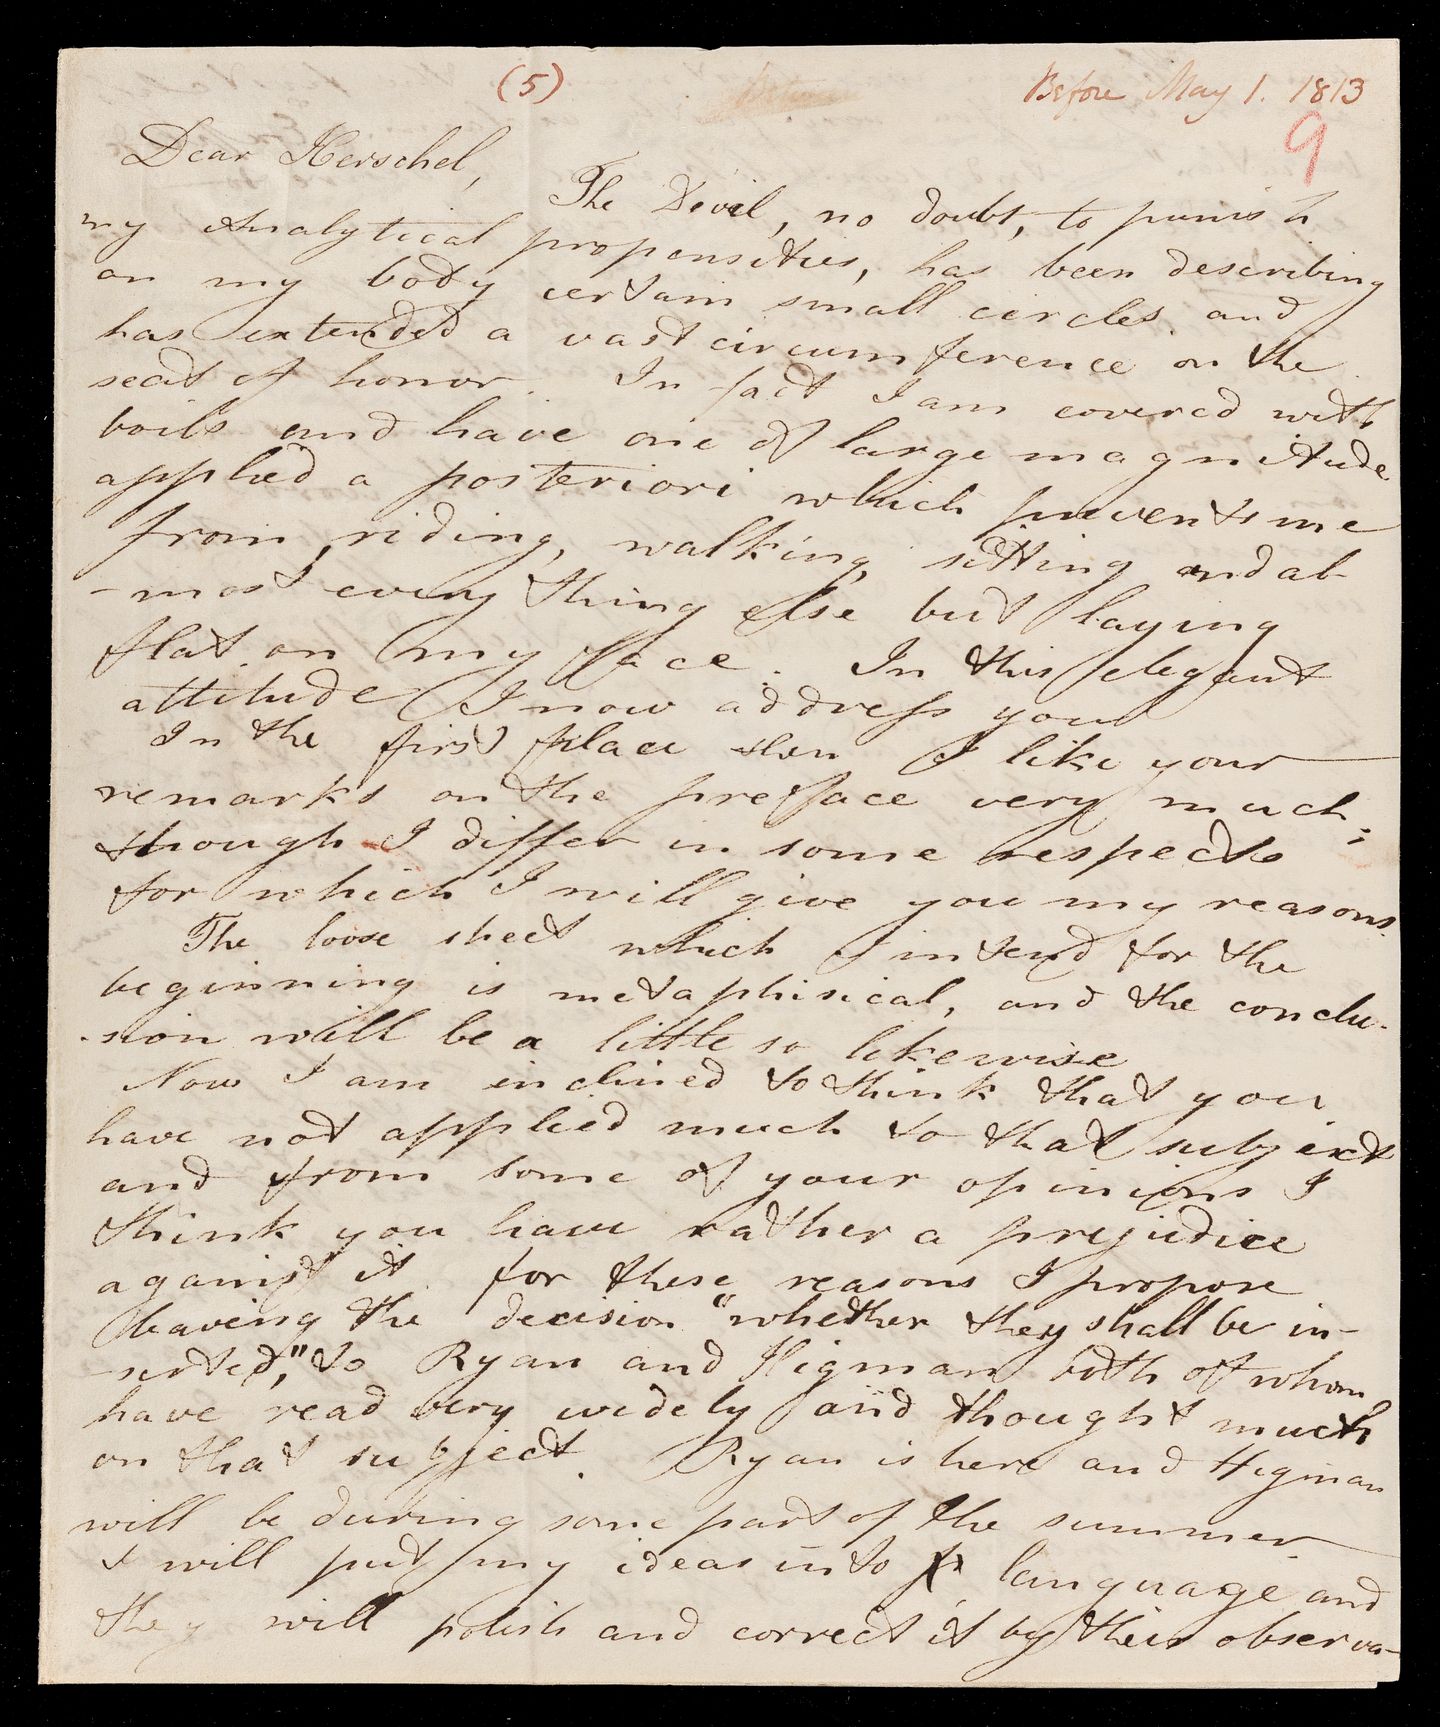 (5)
Before May 1. 1813
9
Dear Herschel,
The Devil, no doubt, to punish
my Analytical propensities, has been describing
on my body certain small circles and
has extended a vast circumference on the
seat of honor. In fact I am covered with
boils and have one of large magnitude
applied a posteriori which prevents me
from riding, walking, sitting and al-
-most every thing else but laying
flat on my face. In this elegant
attitude I now address you
In the first place then I like your
remarks on the preface very much;
though I differ in some respects
for which I will give you my reasons.
The loose sheet which I intend for the
beginning is metaphisical, and the conclu-
-sion will be a little so likewise
Now I am inclined to think that you
have not applied much to that subject
and from some of your opinions I
think you have rather a prejudice
against it for these reasons I propose
leaving the decision "whether they shall be in-
-serted," to Ryan and Higman both of whom
have read very widely and thought much
on that subject. Ryan is here and Higman
will be during some part of the summer
I will put my ideas into language and
they will polish and correct it by their observa-